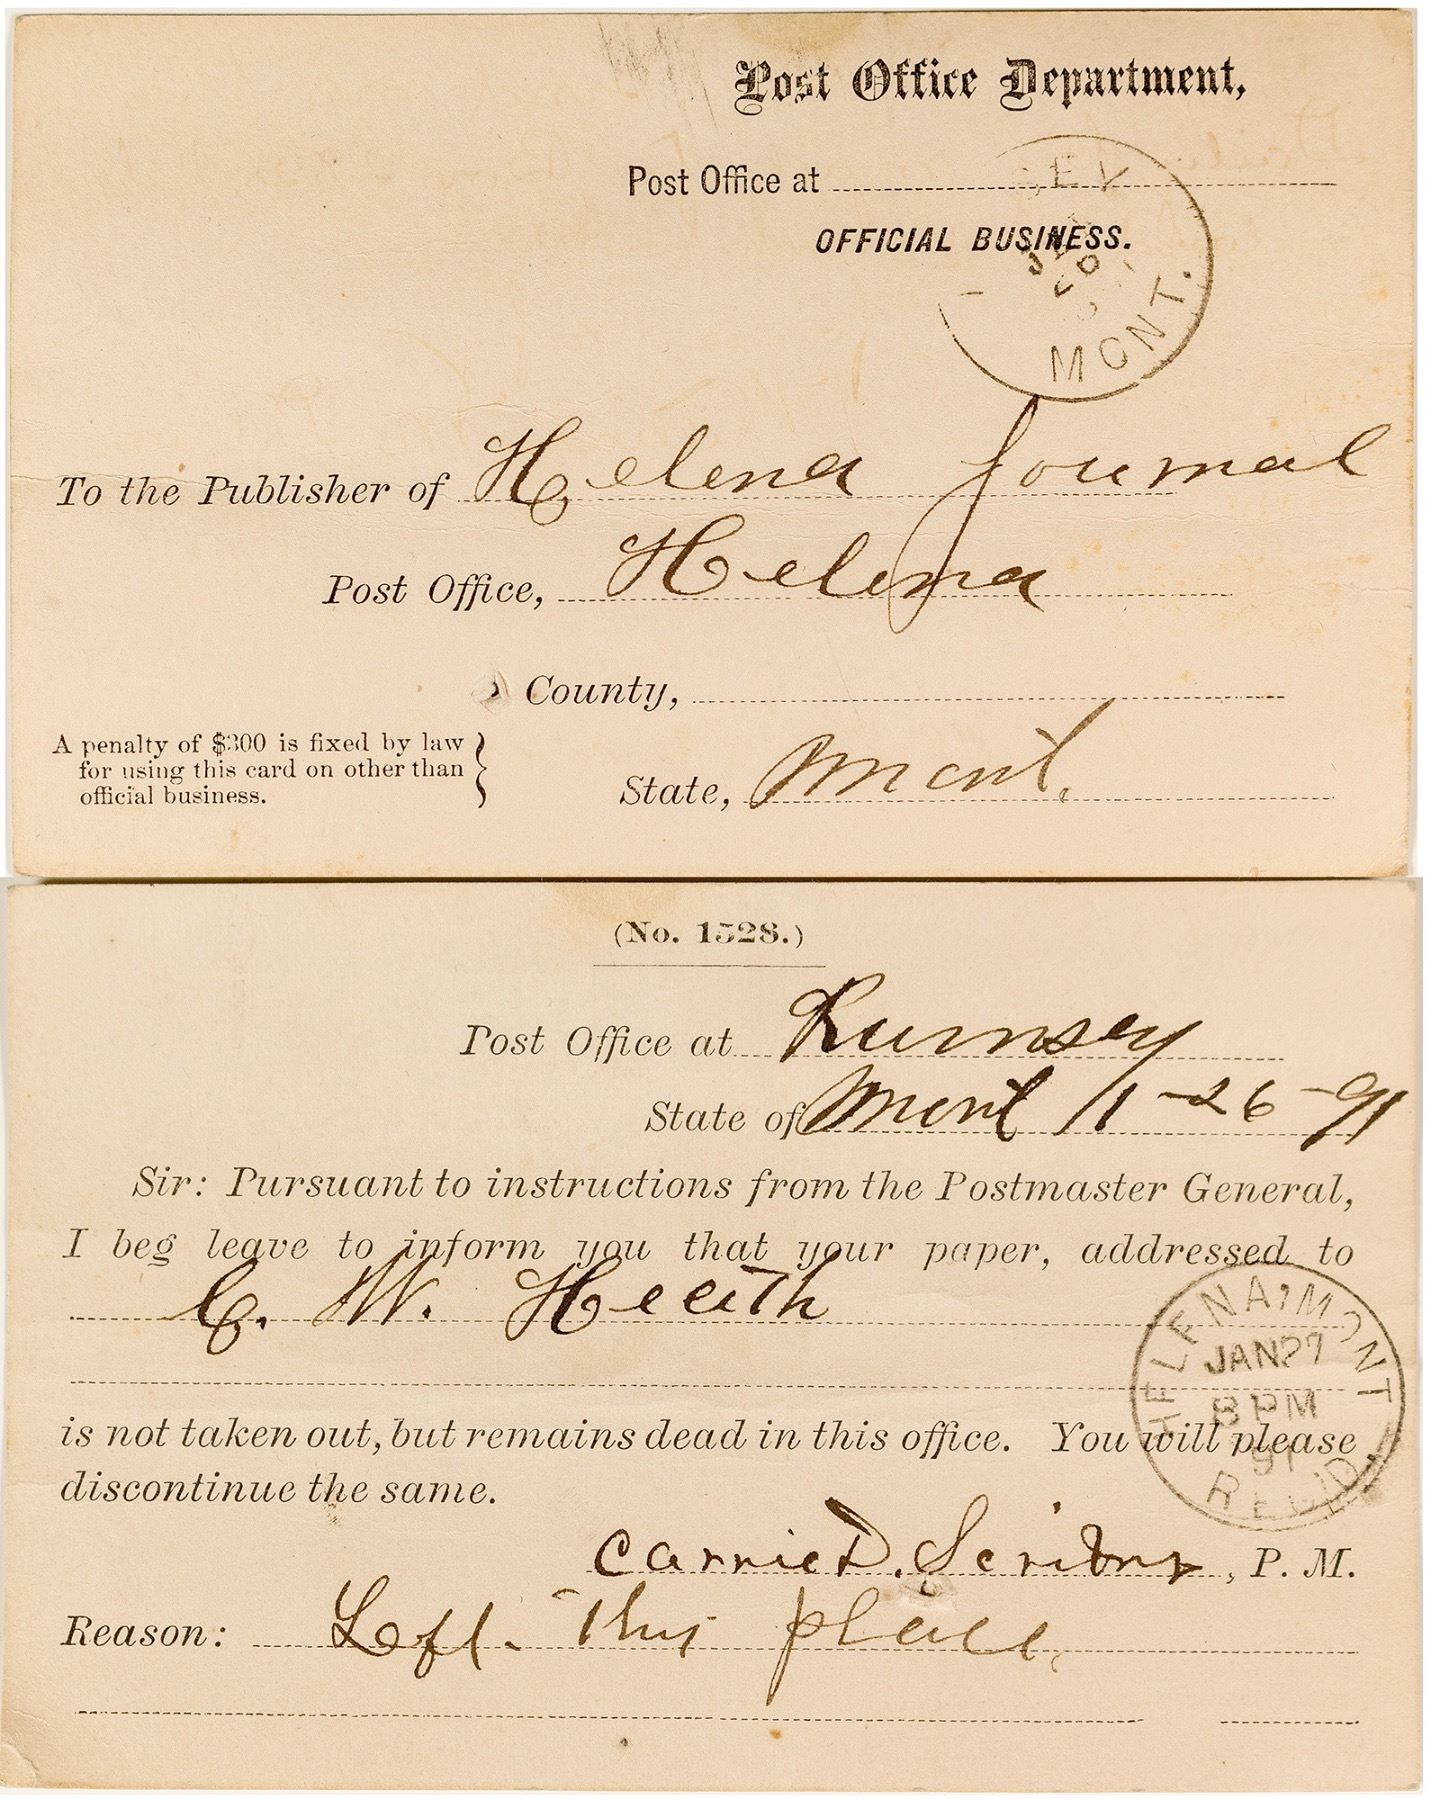 Post Office Department,
Post Office at
OFFICIAL BUSINESS.
MONT.
To the Publisher of Helena Journal
Post Office, Helena
County,
A penalty of $300 is fixed by law
for using this card on other than
official business.
State, Mont.
(No. 1528.)
Post Office at Rumsey
State of Mont 1-26-91
Sir: Pursuant to instructions from the Postmaster General,
I beg leave to inform you that your paper, addressed to
C. W. Heath
HELENA, MONT
JAN 27
8 PM
91
REC'D.
is not taken out, but remains dead in this office. You will please
discontinue the same.
Carrie D. Scribner, P. M.
Reason: Left This place.